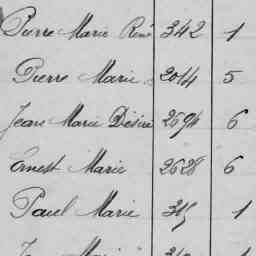 Pierre Marie René 342 1
Pierre Marie 2014 5
Jean Marie Désiré 2694 6
Ernest Marie 2628 6
Paul Marie 315 1